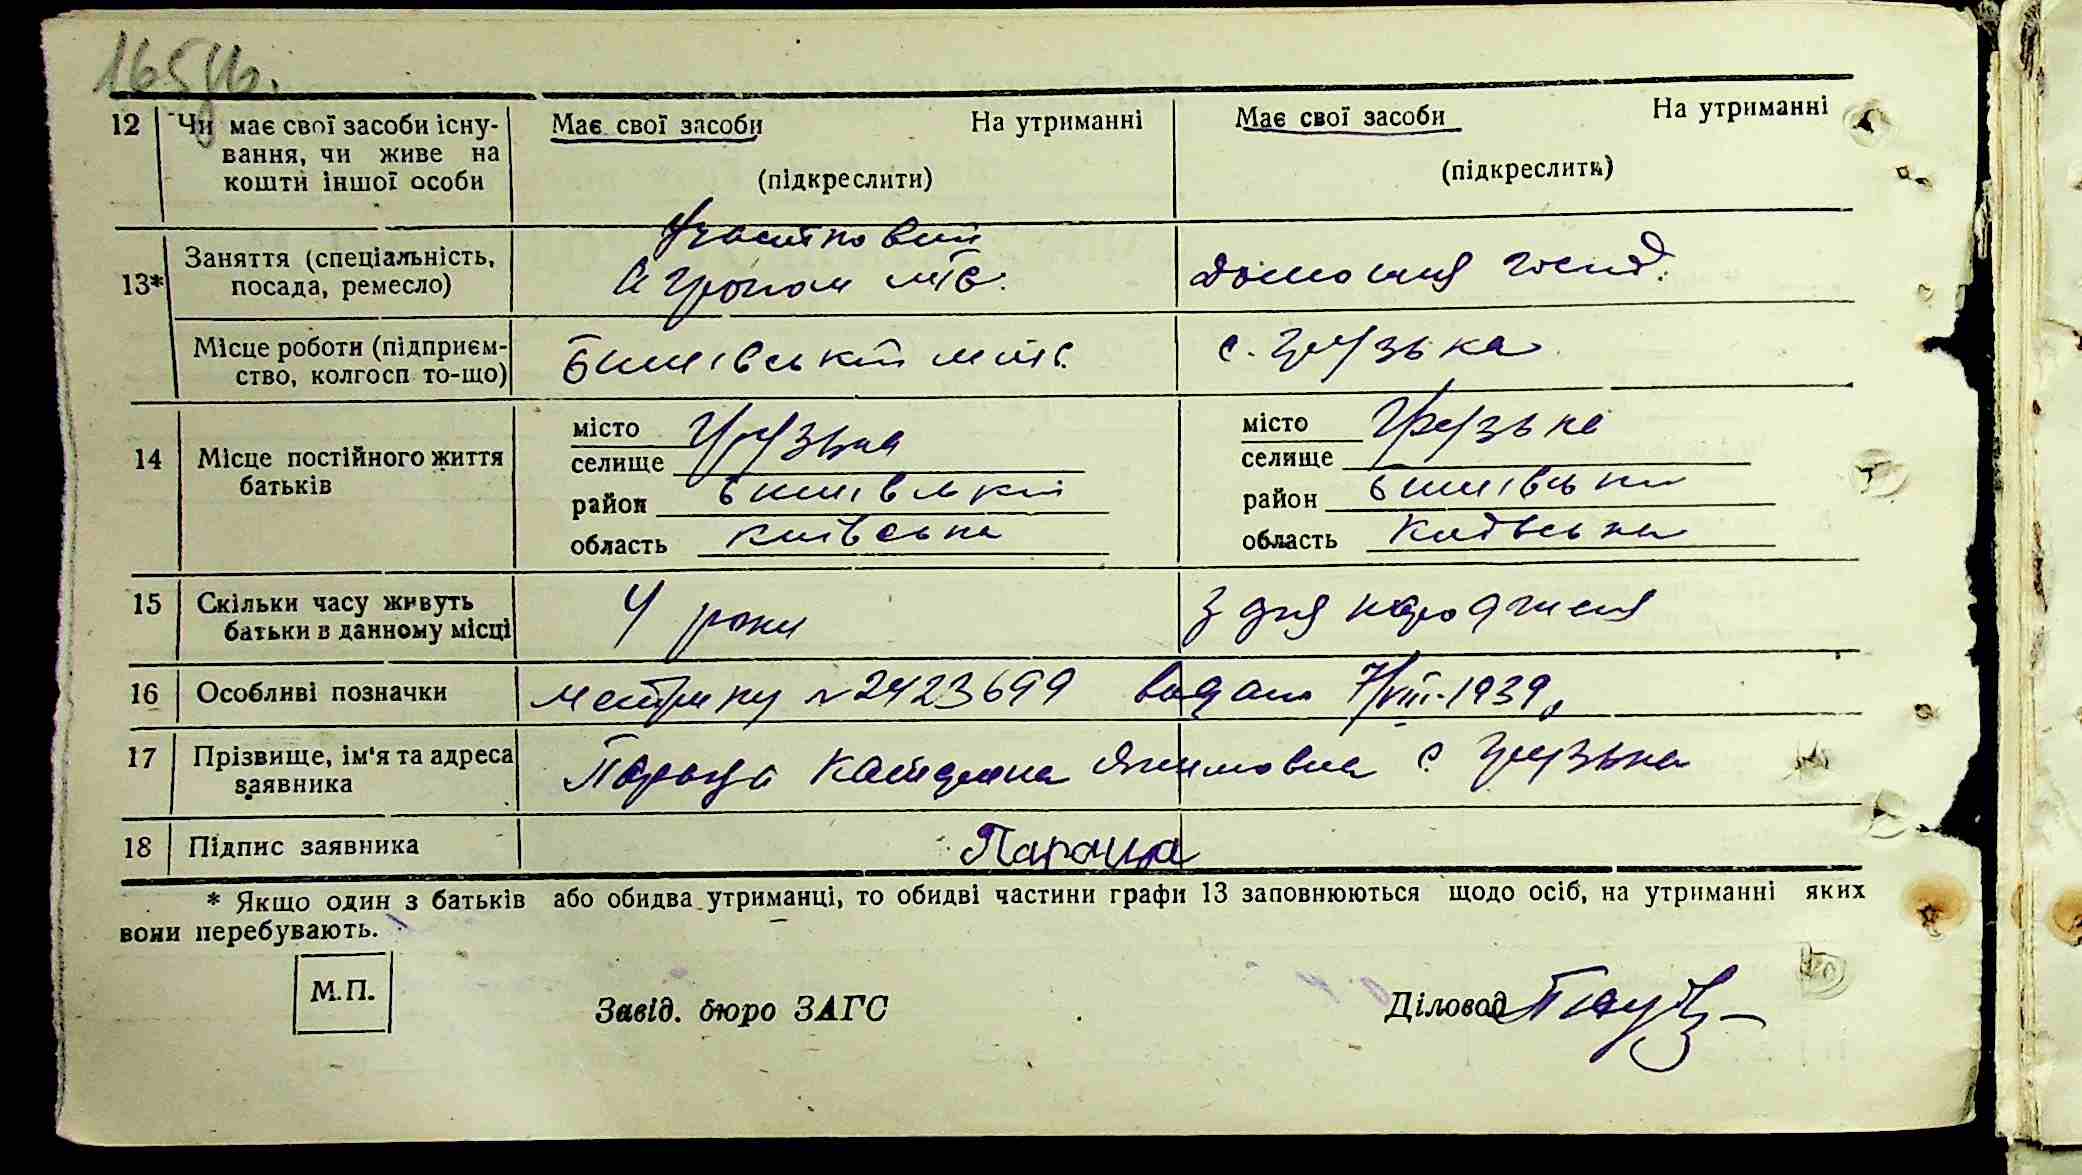 165
12 Чи має свої засоби існу- Має свої засоби На утриманні Має свої засоби На утриманні
вання, чи живе на
кошти іншої особи (підкреслити) (підкреслить)
Участковий
13* Заняття (спеціальність, Агроном мтс. Домошня господ.
посада, ремесло)
Місце роботи (підприєм- Бишівський мтс. с. Грузька
ство, колгосп то-що)
14 Місце постійного життя місто Грузька місто Грузька
батьків селище селище
район Бишівський район Бишівський
область Київська область Київська
15 Скільки часу живуть 4 роки З дня народження
батьки в данному місці
16 Особливі позначки метрику №2423699 видано 7/VIII-1939,
17 Прізвище, ім'я та адреса Параща Катерина Якимовна с Грузька
заявника
18 Підпис заявника Параща
* Якщо один з батьків або обидва утриманці, то обидві частини графи 13 заповнюються щодо осіб, на утриманні яких
вони перебувають.
М.П.
Завід. бюро ЗАГС Діловод